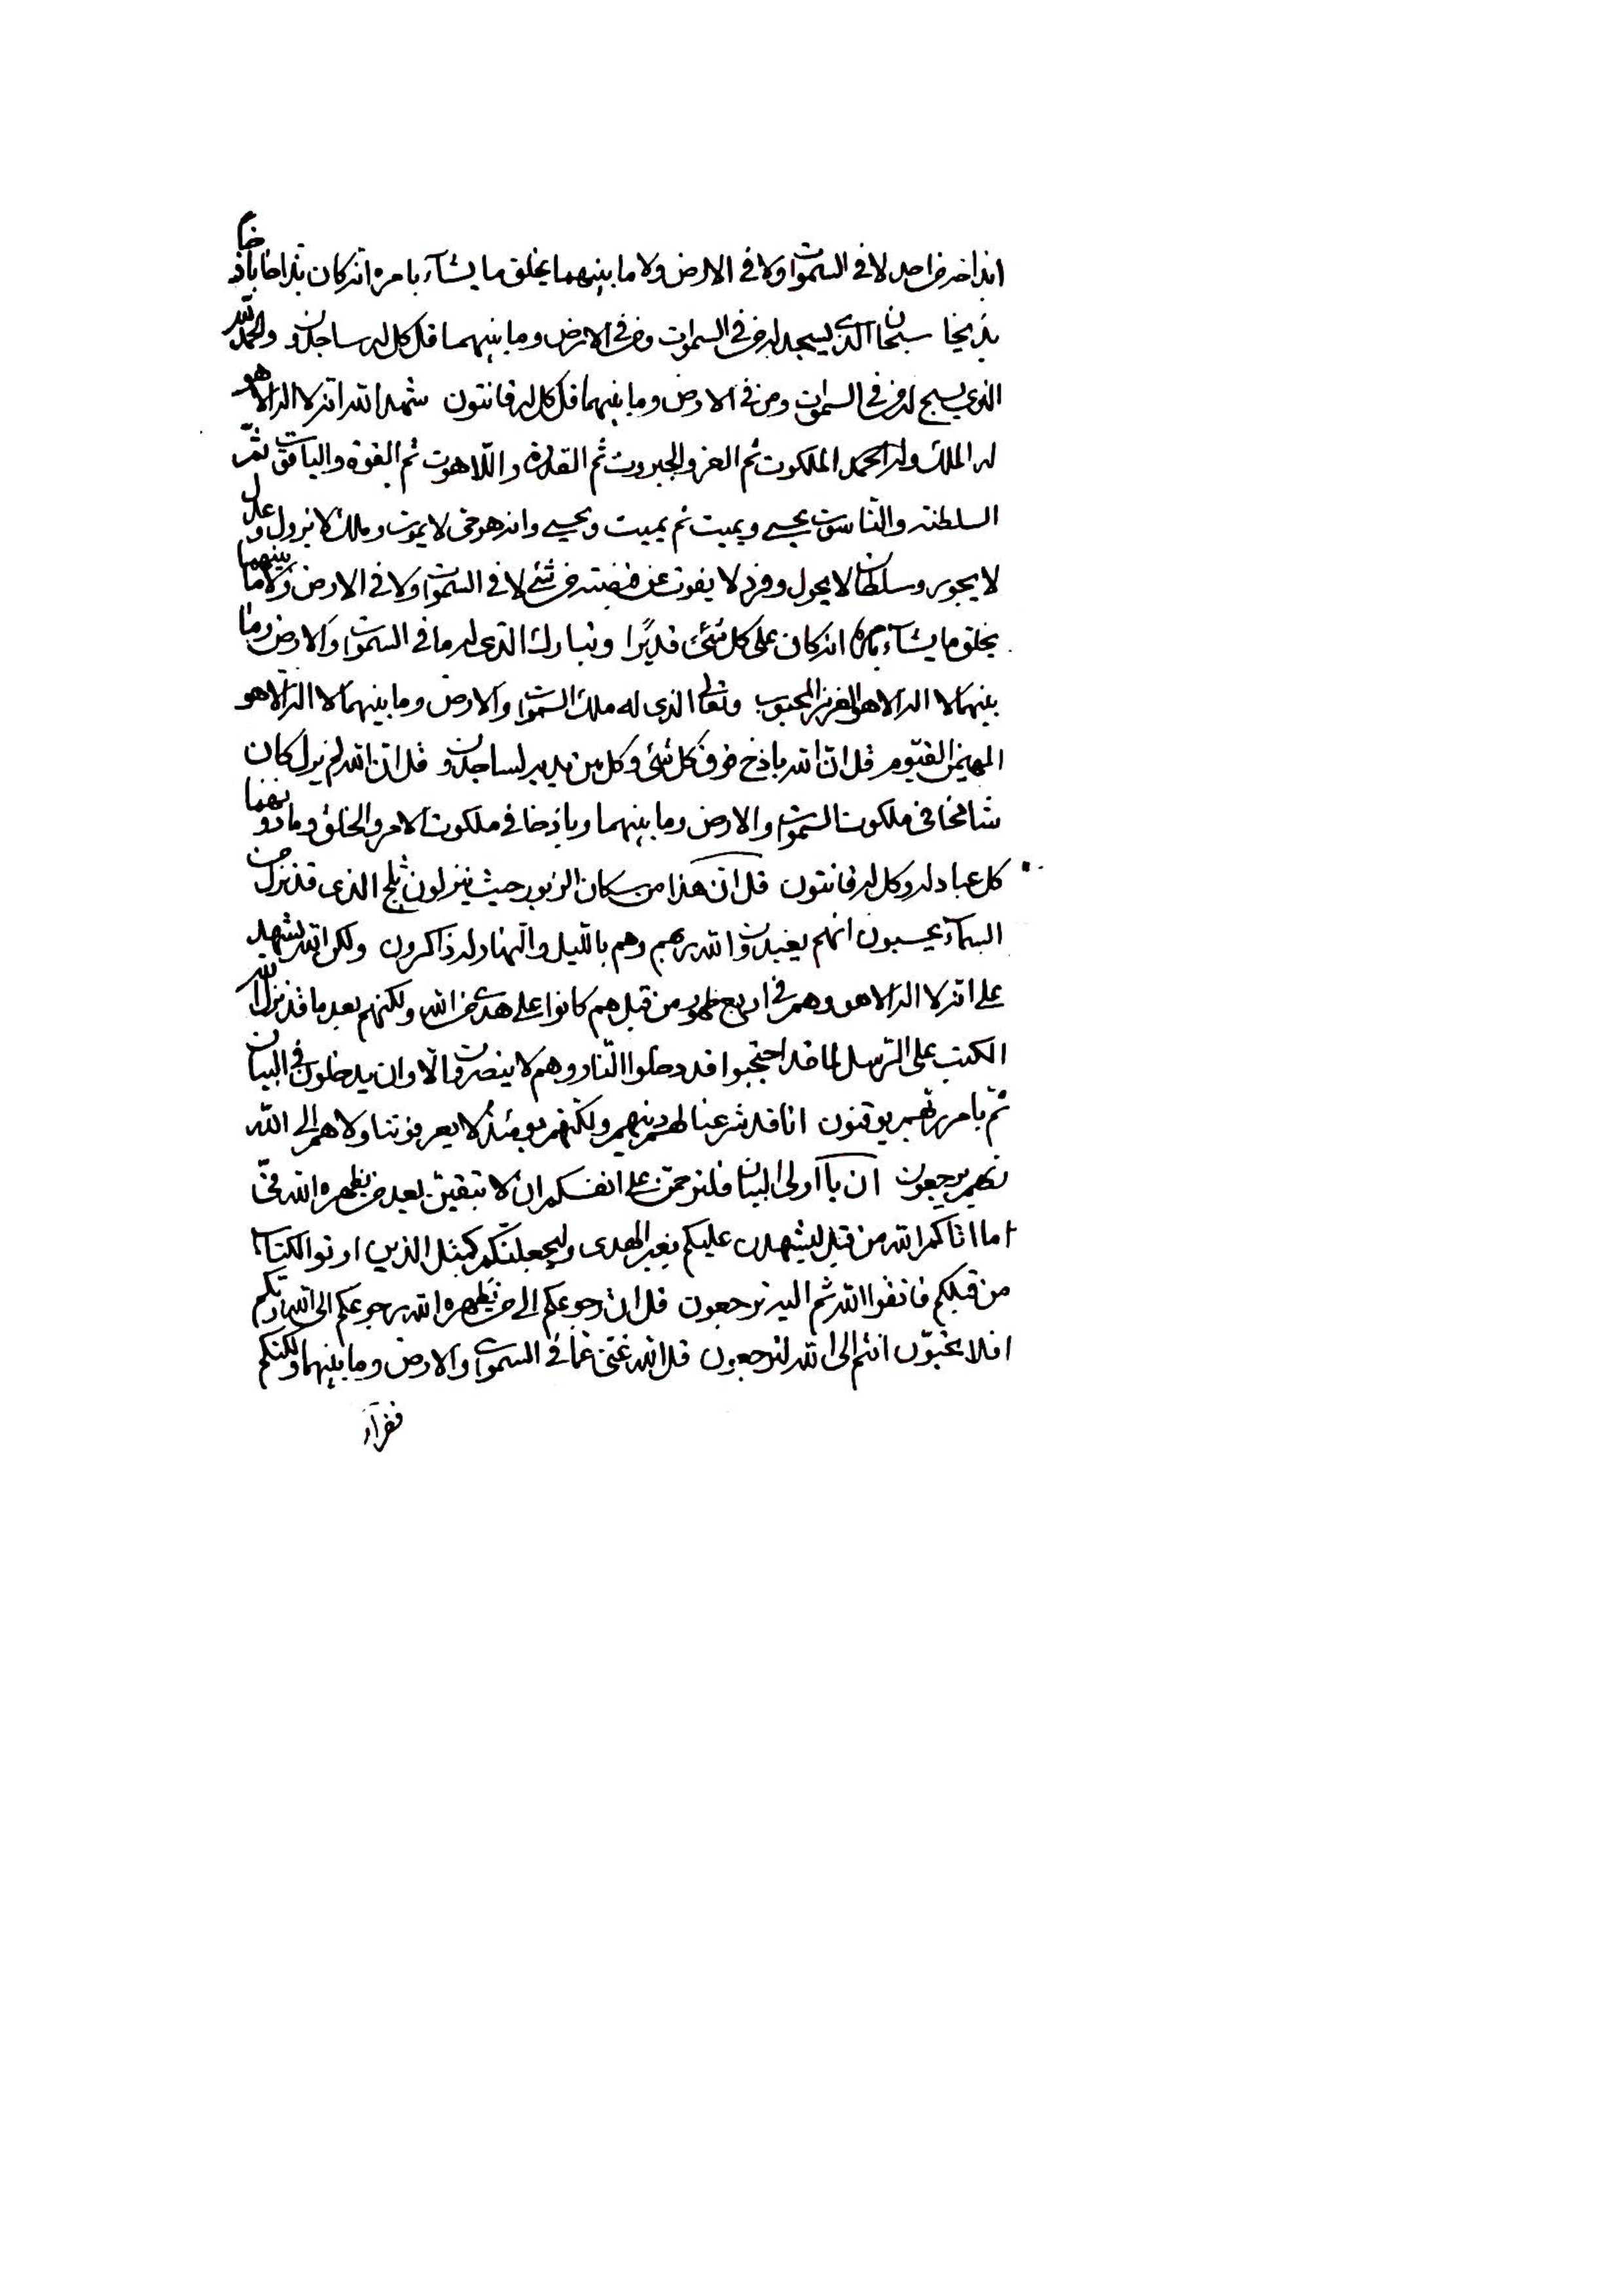 ابذاخه من احد لا في السموات ولا في الارض ولا ما بينهما يخلق ما يشآء بامره انه كان بذاخا باذخا
بذيخا سبحان الذي يسجد له من في السموات ومن في الارض وما بينهما قل كل له ساجدون والحمد لله
الذي يسبح له من في السموات ومن في الارض وما بينهما قل كل له قانتون شهد الله انه لا اله الا هو
له الملك وله الحمد الملكوت ثم العز والجبروت ثم القدرة واللاهوت ثم القوة والياقوت ثم
السلطنة والناسوت يحيي ويميت ثم يميت ويحيي وانه هو حي لا يموت وملك لا يزول وعدل
لا يجور وسلطان لا يحول وفرد لا يفوت عن قبضته من شئ لا في السموات ولا في الارض ولا ما بينهما
يخلق ما يشآء بامره انه كان على كل شئ قديرا وتبارك الذي له ما في السموات والارض وما
بينهما لا اله الا هو العزيز المحبوب وتعالى الذي له ملك السموات والارض وما بينهما لا اله الا هو
المهيمن القيوم قل ان الله باذخ فوق كل شئ وكل من يديه لساجدون قل ان الله لم يزل كان
شامخا في ملكوت السموات والارض وما بينهما وباذخا في ملكوت الامر والخلق وما دونهما
كل عباد له وكل له قانتون قل ان هذا من سكان الزبور حيث ينزلون ثلج الذي قد نزل من
السمآء يحسبون انهم يعبدون الله ربهم وهم بالليل والنهار له ذاكرون ولكن الله يشهد
على انه لا اله الا هو وهم في اربع ظهور من قبل هم كانوا على هدى من الله ولكنهم بعد ما قد نزل الله
الكتب على الرسل لما قد احتجبوا قد دخلوا النار وهم لا ينصرون الا وان يدخلون في البيان
ثم بامر ربهم يوقنون انا قد شرعنا لهم دينهم ولكنهم يومئذ لا يعرفوننا ولا هم الى الله
ربهم يرجعون ان يا اولي البيان فلترحمن على انفسكم ان لا تبقين بعد من يظهره الله في
اما اتاكم الله من قبل ليشهدن عليكم بغير الهدى وليجعلنكم كمثل الذين اوتوا الكتاب
من قبلكم فاتقوا الله ثم اليه ترجعون قل ان رجوعكم الى من يظهره الله رجوعكم الى الله ربكم
افلا تحبون انتم الى الله لترجعون قل الله غني عما في السموات والارض وما بينهما ولكنكم
فقرآء